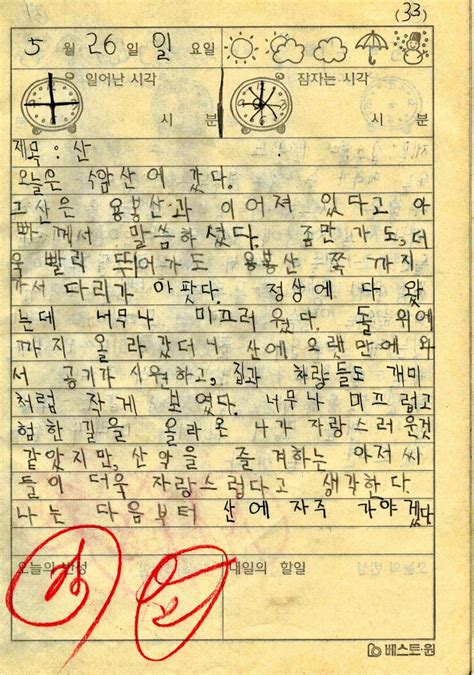 (33)
5 월 26 일 일 요일
일어난 시각 잠자는 시각
시 분 시 분
제목 : 산
오늘은 산에 갔다.
그산은 용봉산과 이어져 있다고 아
빠께서 말씀하셨다. 좀만가도,더
욱 빨라 뛰어가도 용봉산 쪽 까지
가서 다리가 아팟다. 정상에 다 왔
는데 너무나 미끄러 웠다. 돌 위에
까지 올라갔더니 산에 오랫만에 와
서 공기가 시원하고, 집과 차량들도 개미
처럼 작게 보였다. 너무나 미끄럽고
험한 길을 올라온 나가 자랑스러운것
같았지만, 산악을 즐겨하는 아저씨
들이 더욱 자랑스럽다고 생각한다.
나는 다음부터 산에 자주 가야겠다
오늘의 반성 내일의 할일
베스트·원